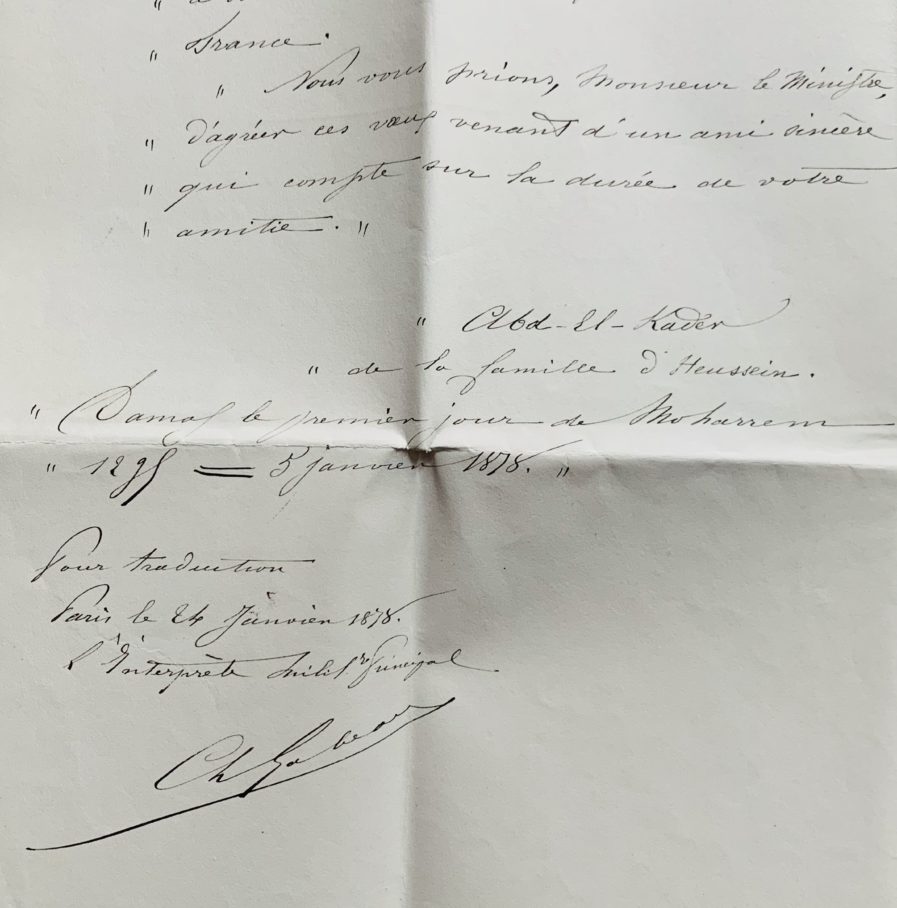 " France.
" Nous vous prions, Monsieur le Ministre,
" d'agréer ces vœux venant d'un ami sincère
" qui compte sur la durée de votre
" amitié. "
" Abd-El-Kader
" de la famille d'Heussein.
" Damas le premier jour de Moharrem
" 1295 = 5 janvier 1878. "
Pour traduction
Paris le 24 Janvier 1878.
L'Interprète Milit.re Principal
Ch